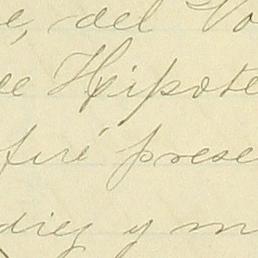 e, del Vo
de Hipote
firé prese
diez y m